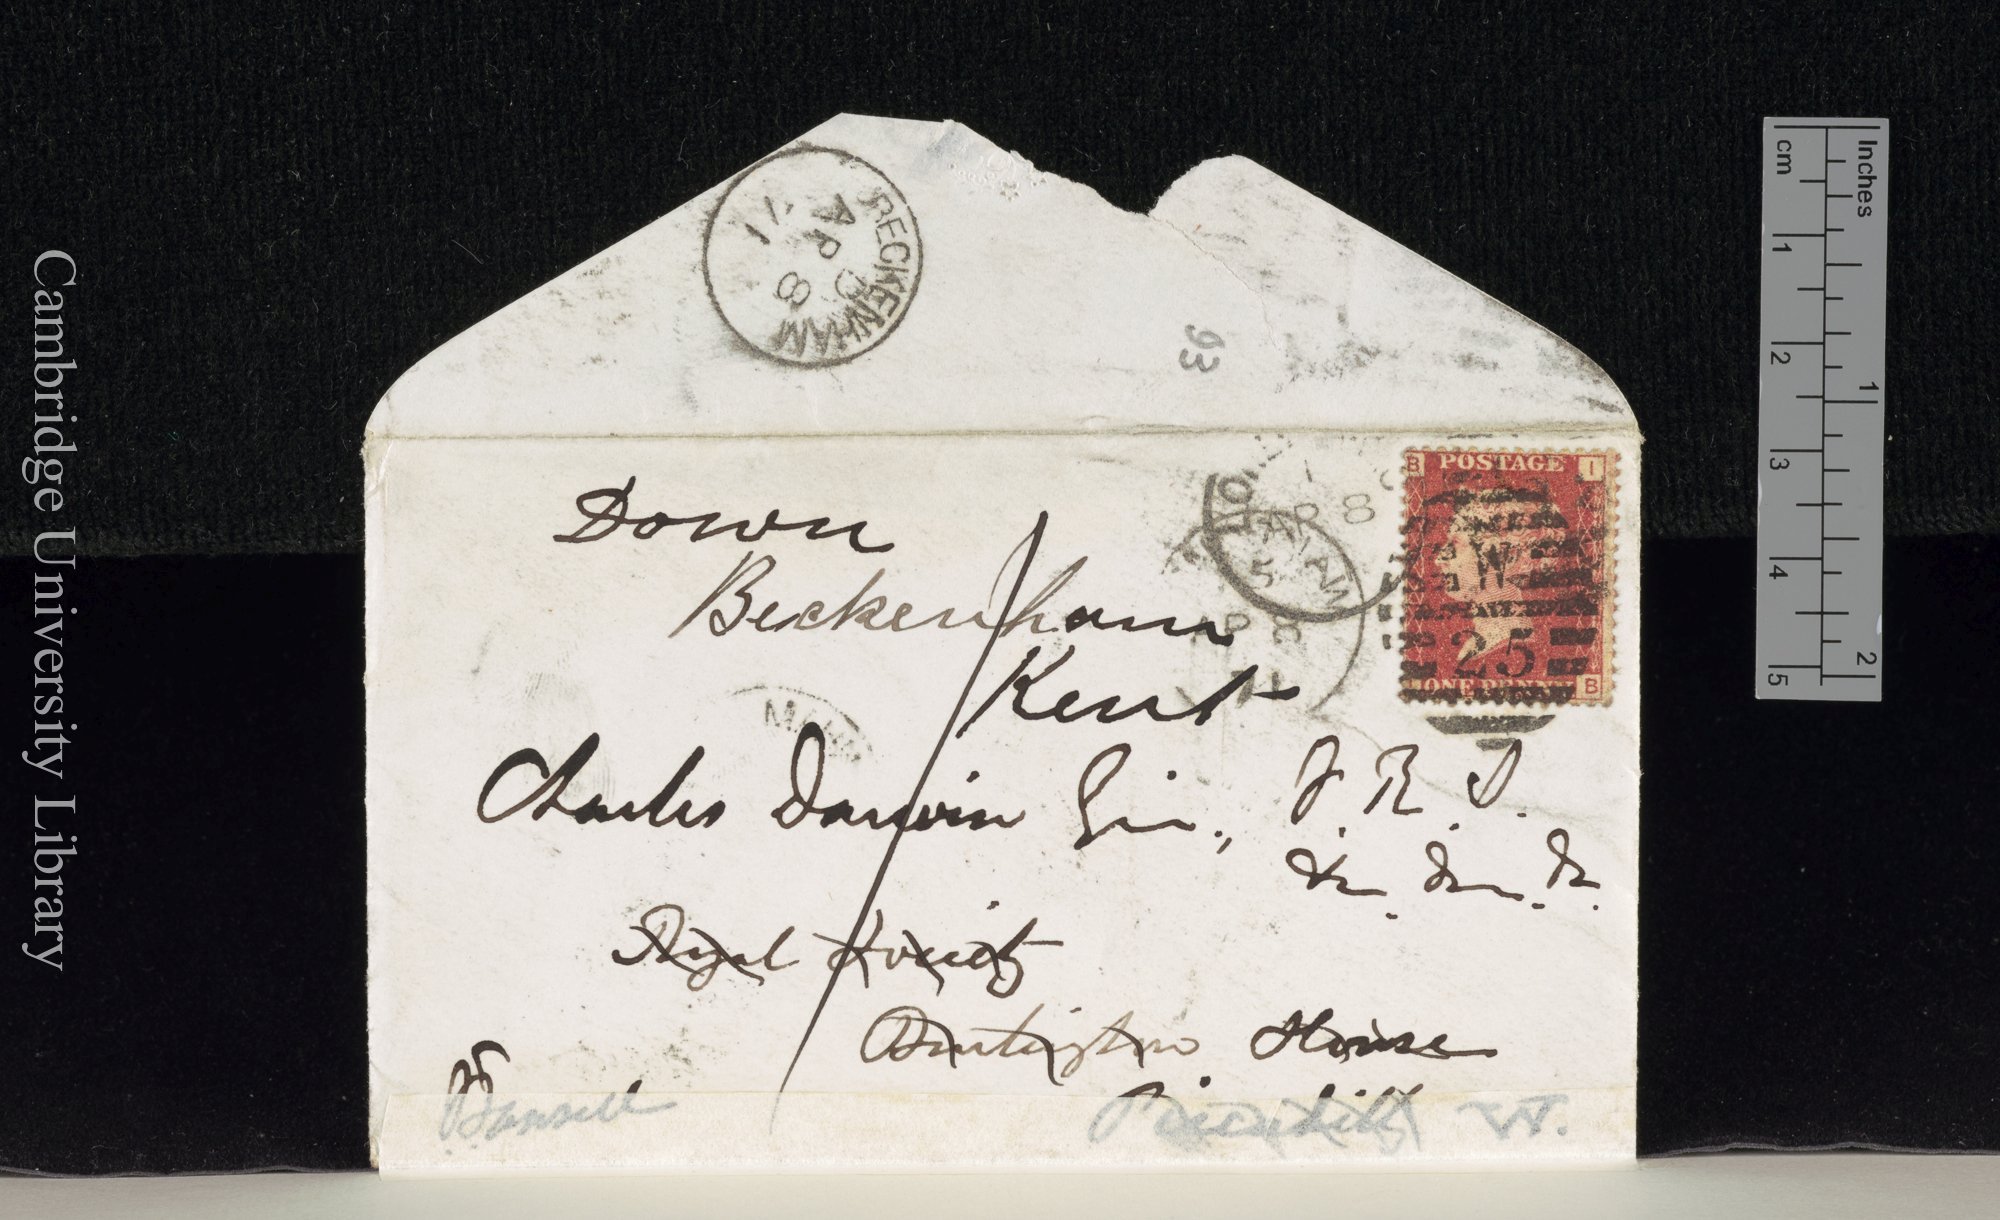 Cambridge University Library
Inches
cm
1
2
3
4
5
1
2
BECKENHAM
AP 8
71
93
LON
AP 8
POSTAGE
B I
W
25
ONE PENNY
B
Down
Beckenham
Kent
Charles Darwin Esq., F. R. S.
&c. &c. &c.
Royal Society
Burlington House
Piccadilly W.